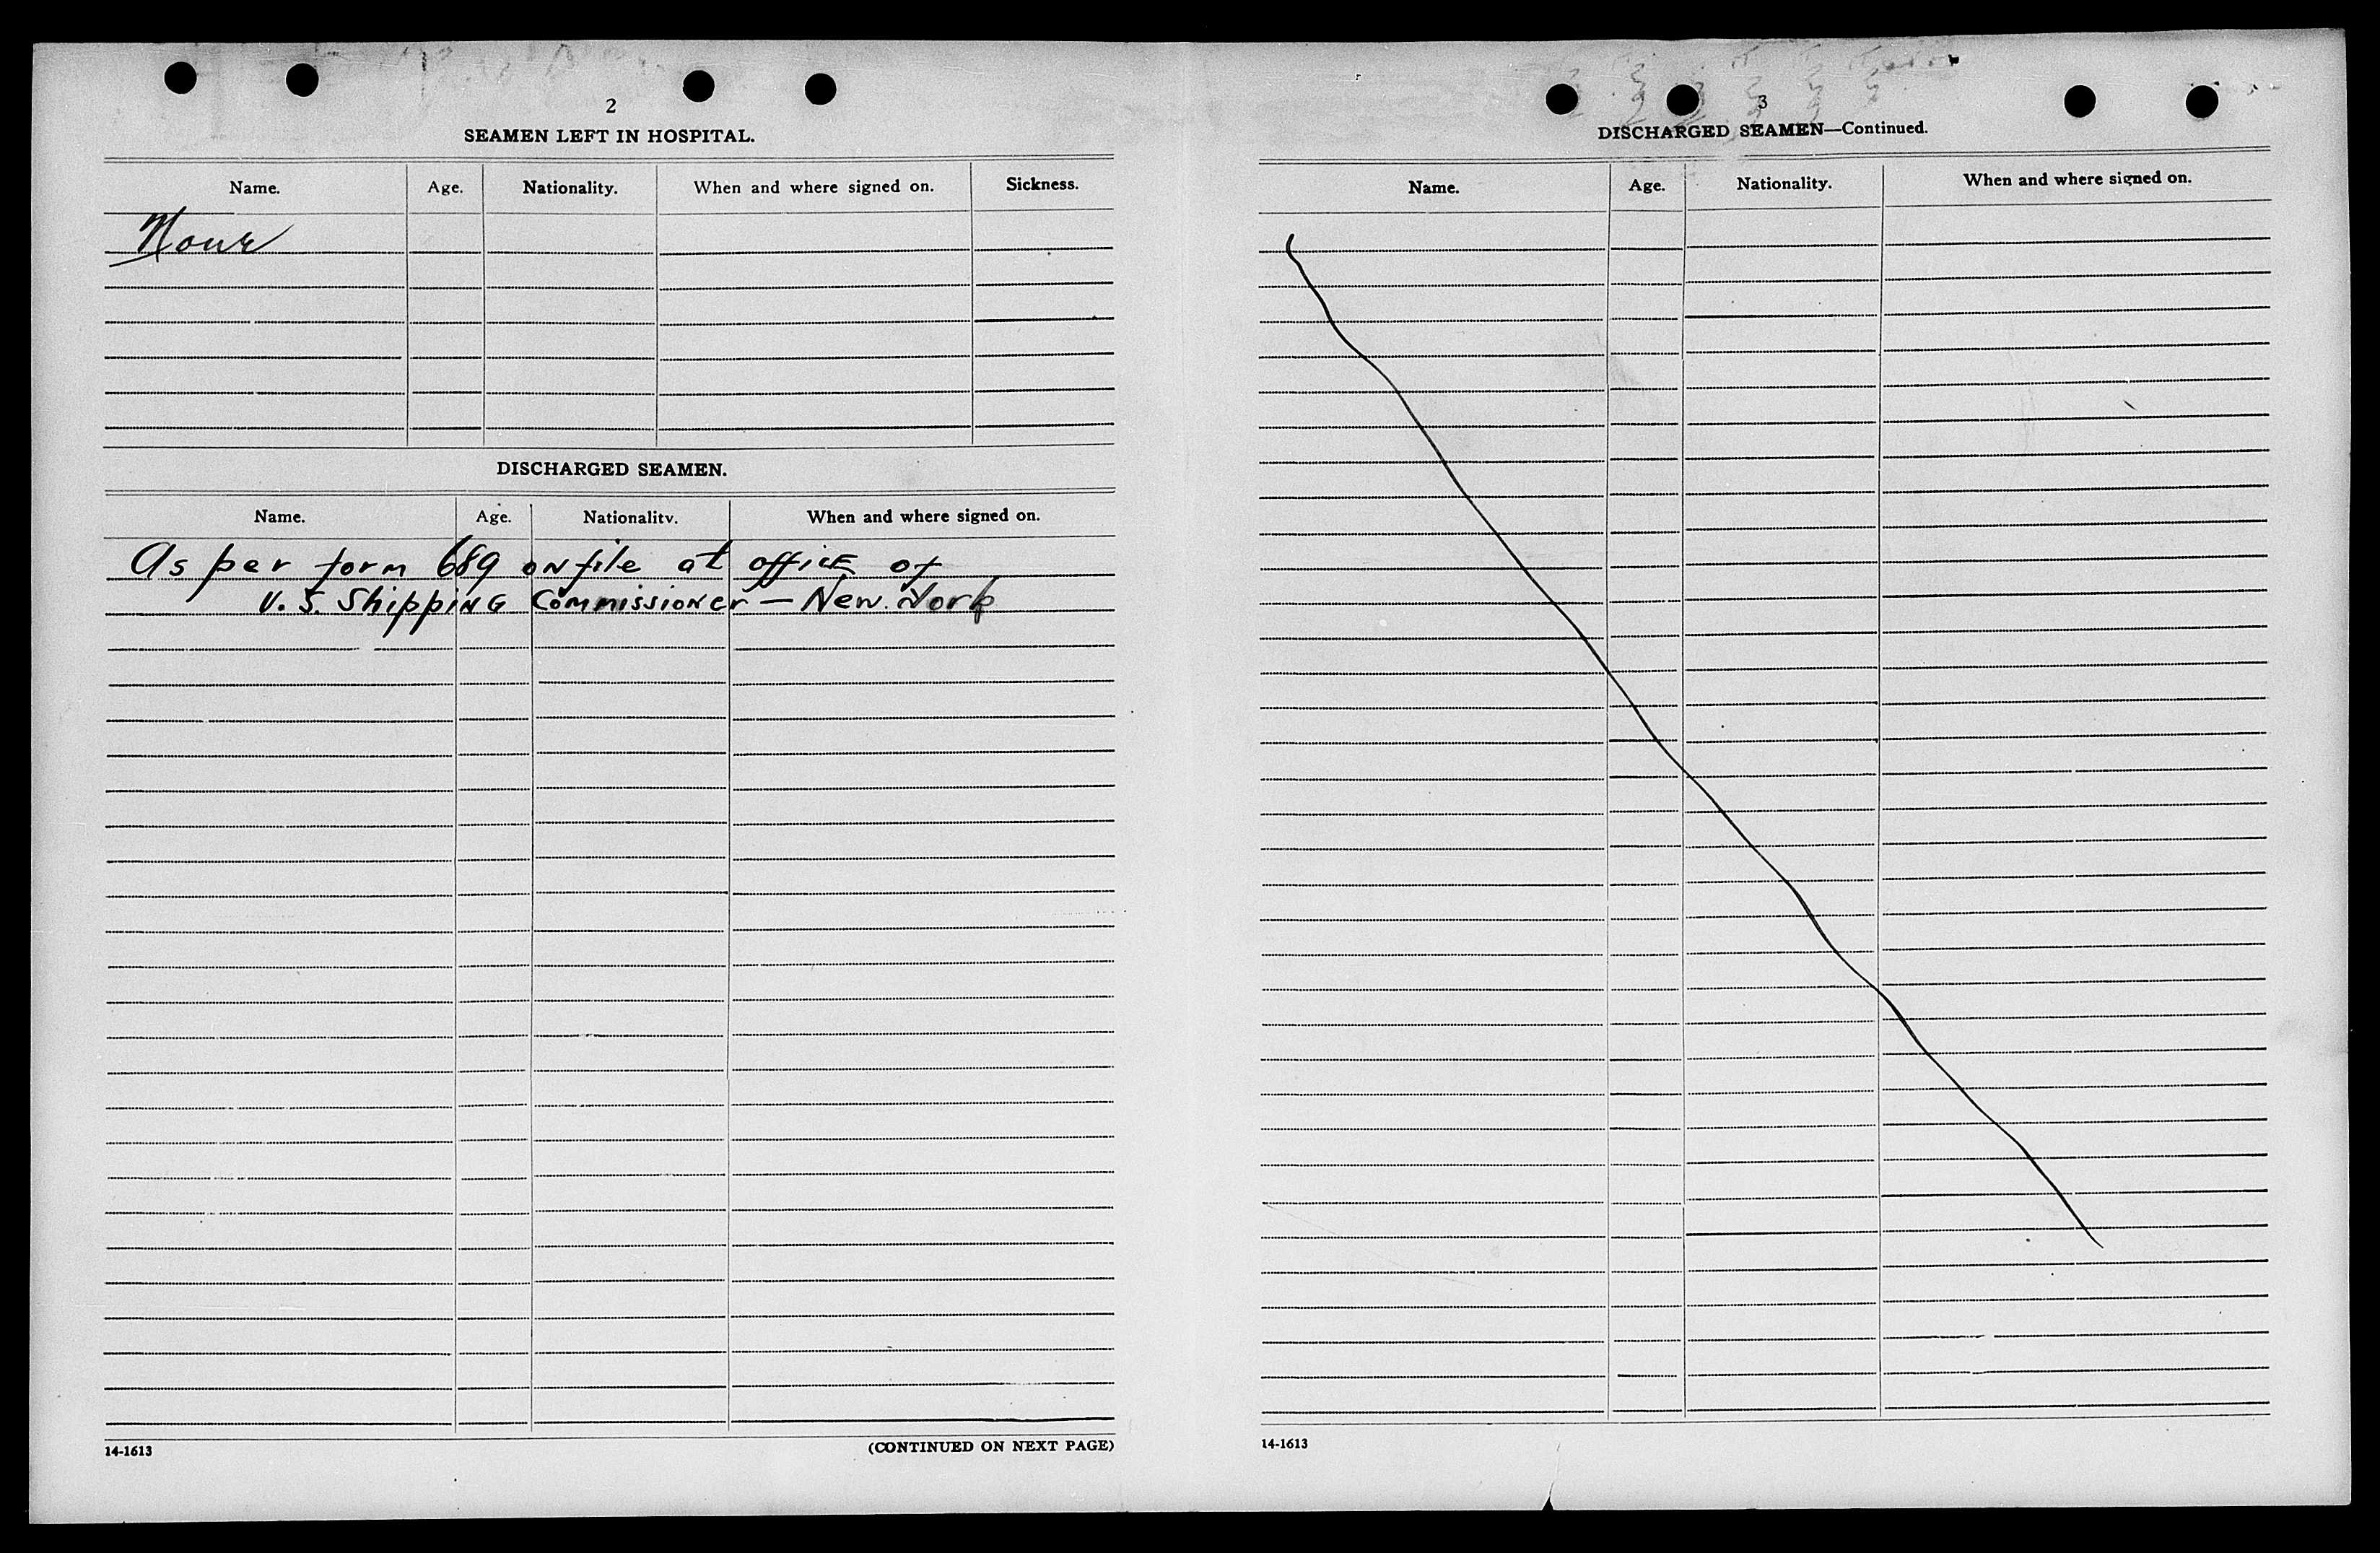 2
SEAMEN LEFT IN HOSPITAL.
Name. Age. Nationality. When and where signed on. Sickness.
None
DISCHARGED SEAMEN.
Name. Age. Nationality. When and where signed on.
As per form 689 on file at office of
U.S. Shipping Commissioner — New York
14-1613 (CONTINUED ON NEXT PAGE)
3
DISCHARGED SEAMEN—Continued.
Name. Age. Nationality. When and where signed on.
14-1613